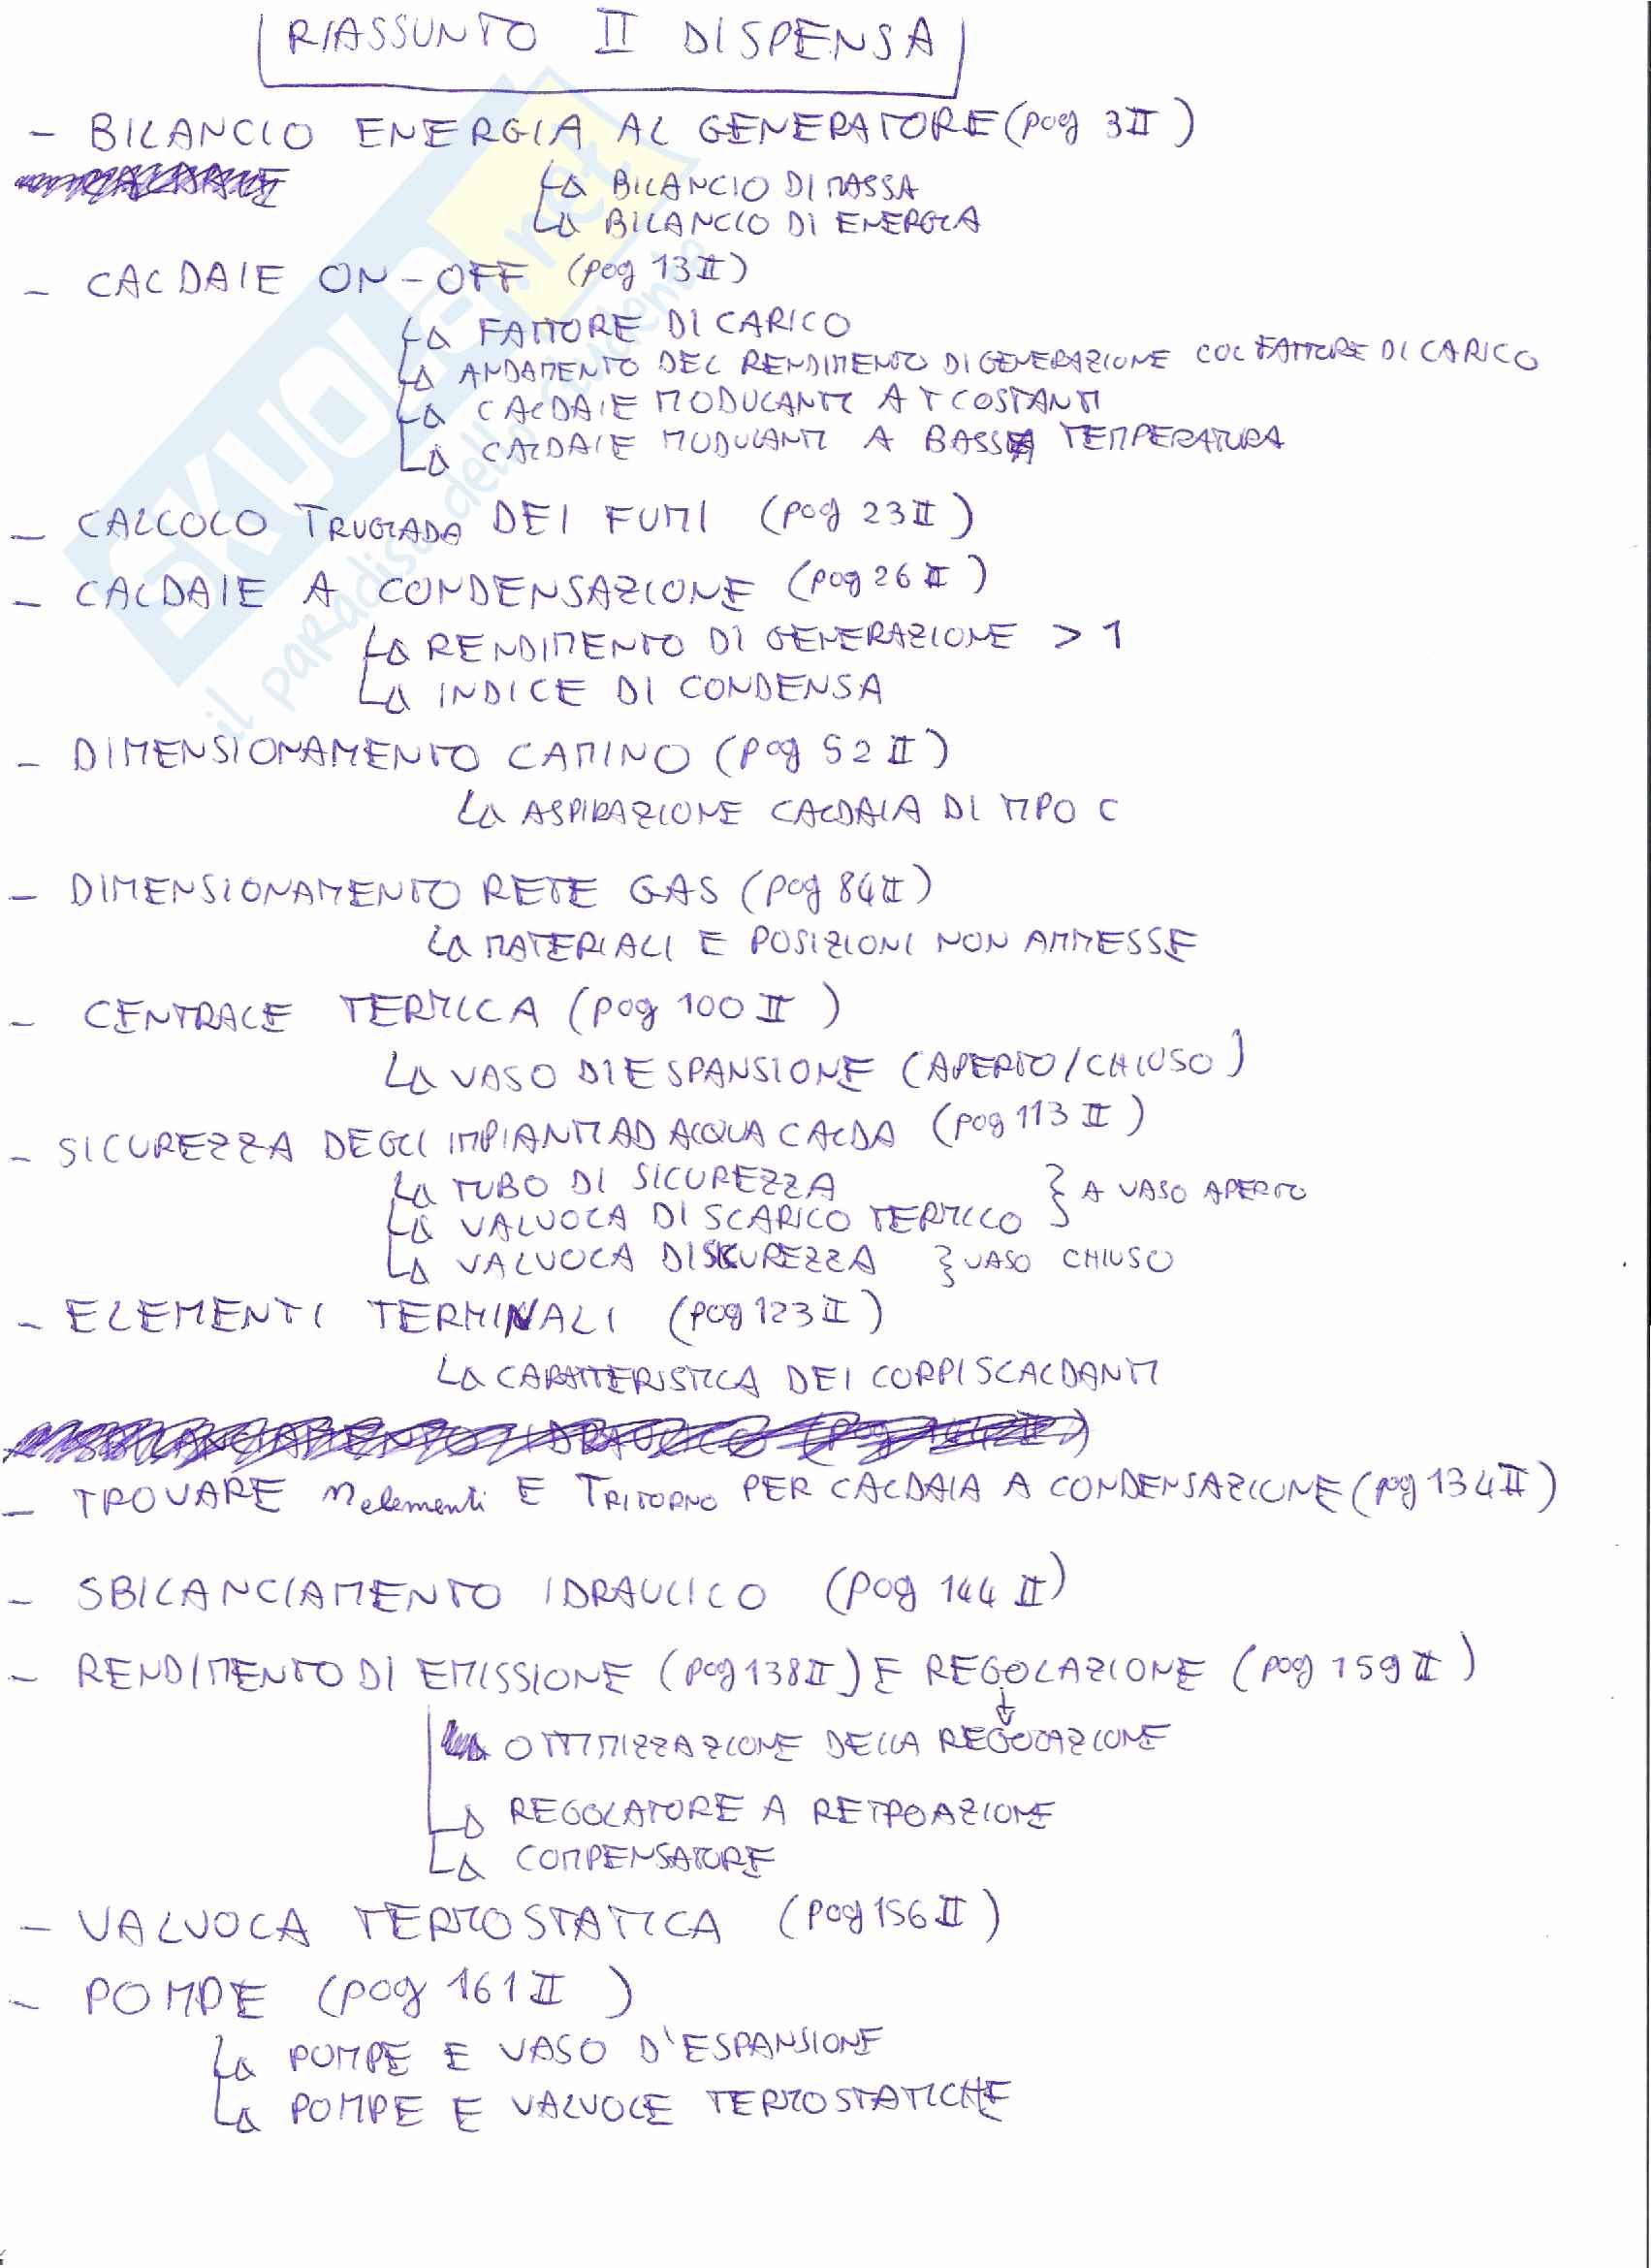 RIASSUNTO II DISPENSA
- BILANCIO ENERGIA AL GENERATORE (pag 3 II)
CALDAIE
↳ BILANCIO DI MASSA
↳ BILANCIO DI ENERGIA
- CALDAIE ON-OFF (pag 13 II)
↳ FATTORE DI CARICO
↳ ANDAMENTO DEL RENDIMENTO DI GENERAZIONE COL FATTORE DI CARICO
↳ CALDAIE MODULANTI A T COSTANTI
↳ CALDAIE MODULANTI A BASSA TEMPERATURA
- CALCOLO TRUGIADA DEI FUMI (pag 23 II)
- CALDAIE A CONDENSAZIONE (pag 26 II)
↳ RENDIMENTO DI GENERAZIONE > 1
↳ INDICE DI CONDENSA
- DIMENSIONAMENTO CAMINO (pag 52 II)
↳ ASPIRAZIONE CALDAIA DI TIPO C
- DIMENSIONAMENTO RETE GAS (pag 84 II)
↳ MATERIALI E POSIZIONI NON AMMESSE
- CENTRALE TERMICA (pag 100 II)
↳ VASO DI ESPANSIONE (APERTO/CHIUSO)
- SICUREZZA DEGLI IMPIANTI AD ACQUA CALDA (pag 113 II)
↳ TUBO DI SICUREZZA } A VASO APERTO
↳ VALVOLA DI SCARICO TERMICO
↳ VALVOLA DI SICUREZZA } VASO CHIUSO
- ELEMENTI TERMINALI (pag 123 II)
↳ CARATTERISTICA DEI CORPI SCALDANTI
SBILANCIAMENTO IDRAULICO (pag 144 II)
- TROVARE n elementi E TRITORNO PER CALDAIA A CONDENSAZIONE (pag 134 II)
- SBILANCIAMENTO IDRAULICO (pag 144 II)
- RENDIMENTO DI EMISSIONE (pag 138 II) E REGOLAZIONE (pag 159 II)
↳ OTTIMIZZAZIONE DELLA REGOLAZIONE
↳ REGOLATORE A RETROAZIONE
↳ COMPENSATORE
- VALVOLA TERMOSTATICA (pag 156 II)
- POMPE (pag 161 II)
↳ POMPE E VASO D'ESPANSIONE
↳ POMPE E VALVOLE TERMOSTATICHE
SKUOLA.net
il paradiso dello studente